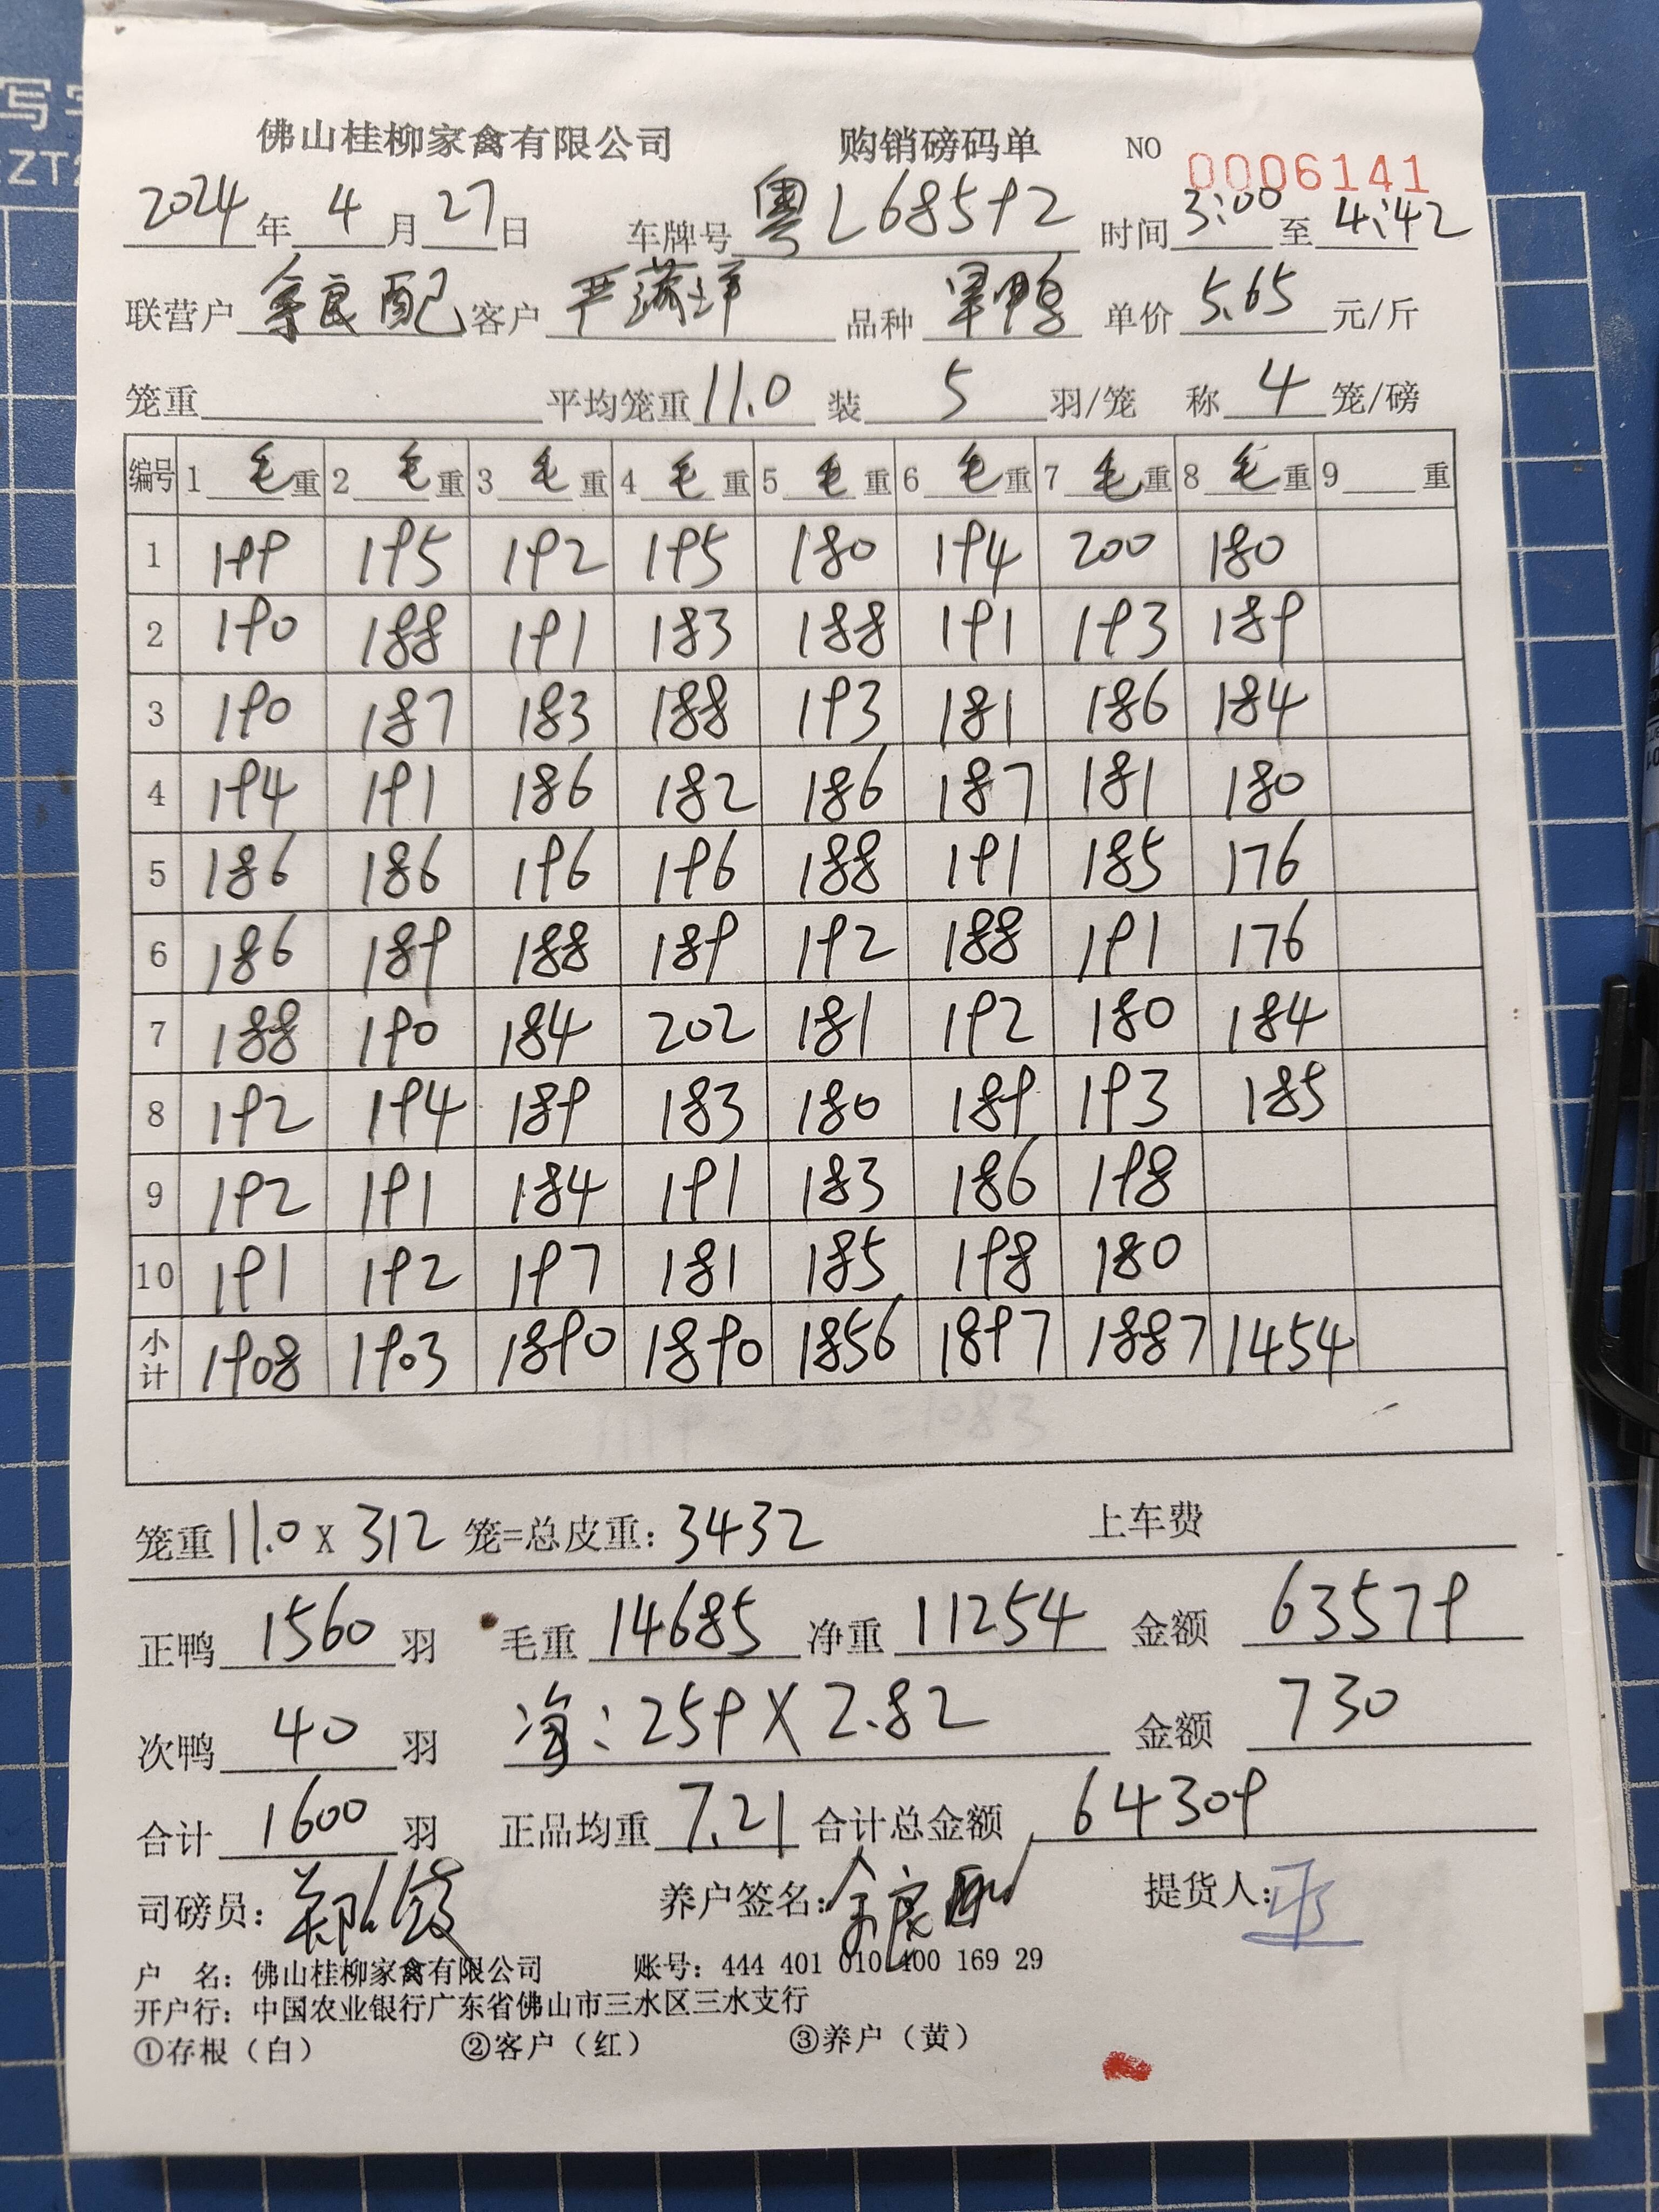 写字
ZT2
佛山桂柳家禽有限公司 购销磅码单 NO 0006141
2024年4月27日 车牌号 粤L68592 时间 3:00 至 4:42
联营户 余良配 客户 严 品种 旱鸭 单价 5.65 元/斤
笼重 平均笼重 11.0 装 5 羽/笼 称 4 笼/磅
编号 1 毛重 2 毛重 3 毛重 4 毛重 5 毛重 6 毛重 7 毛重 8 毛重 9 重
1 199 195 192 195 180 194 200 180
2 190 188 191 183 188 191 193 189
3 190 187 183 188 193 181 186 184
4 194 191 186 182 186 187 181 180
5 186 186 196 196 188 191 185 176
6 186 189 188 189 192 188 191 176
7 188 190 184 202 181 192 180 184
8 192 194 189 183 180 189 193 185
9 192 191 184 191 183 186 198
10 191 192 197 181 185 198 180
小计 1908 1903 1890 1890 1856 1897 1887 1454
笼重 11.0 X 312 笼=总皮重: 3432 上车费
正鸭 1560 羽 毛重 14685 净重 11254 金额 63579
次鸭 40 羽 净: 259 X 2.82 金额 730
合计 1600 羽 正品均重 7.21 合计总金额 64309
司磅员: 郑 养户签名: 余良配 提货人:
户 名: 佛山桂柳家禽有限公司 账号: 444 401 010 400 169 29
开户行: 中国农业银行广东省佛山市三水区三水支行
①存根（白） ②客户（红） ③养户（黄）